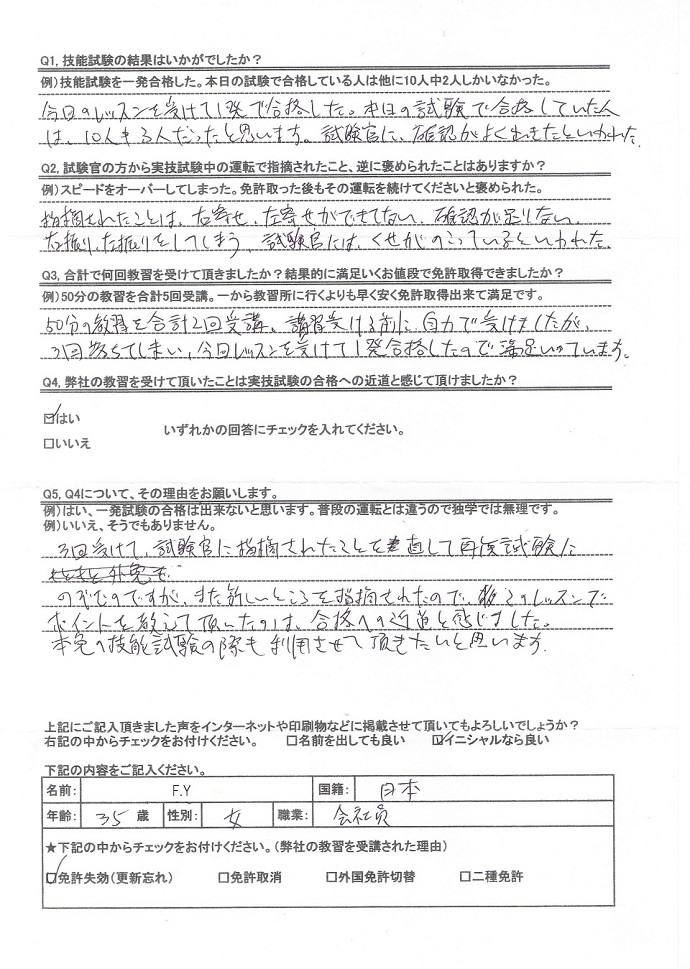 Q1, 技能試験の結果はいかがでしたか？
例）技能試験を一発合格した。本日の試験で合格している人は他に10人中2人しかいなかった。
今日のレッスンを受けて1発で合格した。本日の試験で合格していた人
は、10人中3人だったと思います。試験官に、確認がよく出きたといわれた。
Q2, 試験官の方から実技試験中の運転で指摘されたこと、逆に褒められたことはありますか？
例）スピードをオーバーしてしまった。免許取った後もその運転を続けてくださいと褒められた。
指摘されたことは、右寄せ、左寄せができてない、確認が足りない、
右振り、左振りをしてしまう、試験官には、くせがのこっているといわれた。
Q3, 合計で何回教習を受けて頂きましたか？結果的に満足いくお値段で免許取得できましたか？
例）50分の教習を合計5回受講。一から教習所に行くよりも早く安く免許取得出来て満足です。
50分の教習を合計2回受講、講習受ける前に、自力で受けましたが、
3回落ちてしまい、今回レッスンを受けて1発合格したので満足いっています。
Q4, 弊社の教習を受けて頂いたことは実技試験の合格への近道と感じて頂けましたか？
☑はい
いずれかの回答にチェックを入れてください。
□いいえ
Q5, Q4について、その理由をお願いします。
例）はい、一発試験の合格は出来ないと思います。普段の運転とは違うので独学では無理です。
例）いいえ、そうでもありません。
3回受けて、試験官に指摘されたことを直して再度試験に
のぞむのですが、また新しいところを指摘されたので、そのレッスンで
ポイントを教えて頂いたのは、合格への近道と感じました。
本免の技能試験の際も利用させて頂きたいと思います。
上記にご記入頂きました声をインターネットや印刷物などに掲載させて頂いてもよろしいでしょうか？
右記の中からチェックをお付けください。 □名前を出しても良い ☑イニシャルなら良い
下記の内容をご記入ください。
名前： F.Y 国籍： 日本
年齢： 35 歳 性別： 女 職業： 会社員
★下記の中からチェックをお付けください。（弊社の教習を受講された理由）
☑免許失効（更新忘れ） □免許取消 □外国免許切替 □二種免許